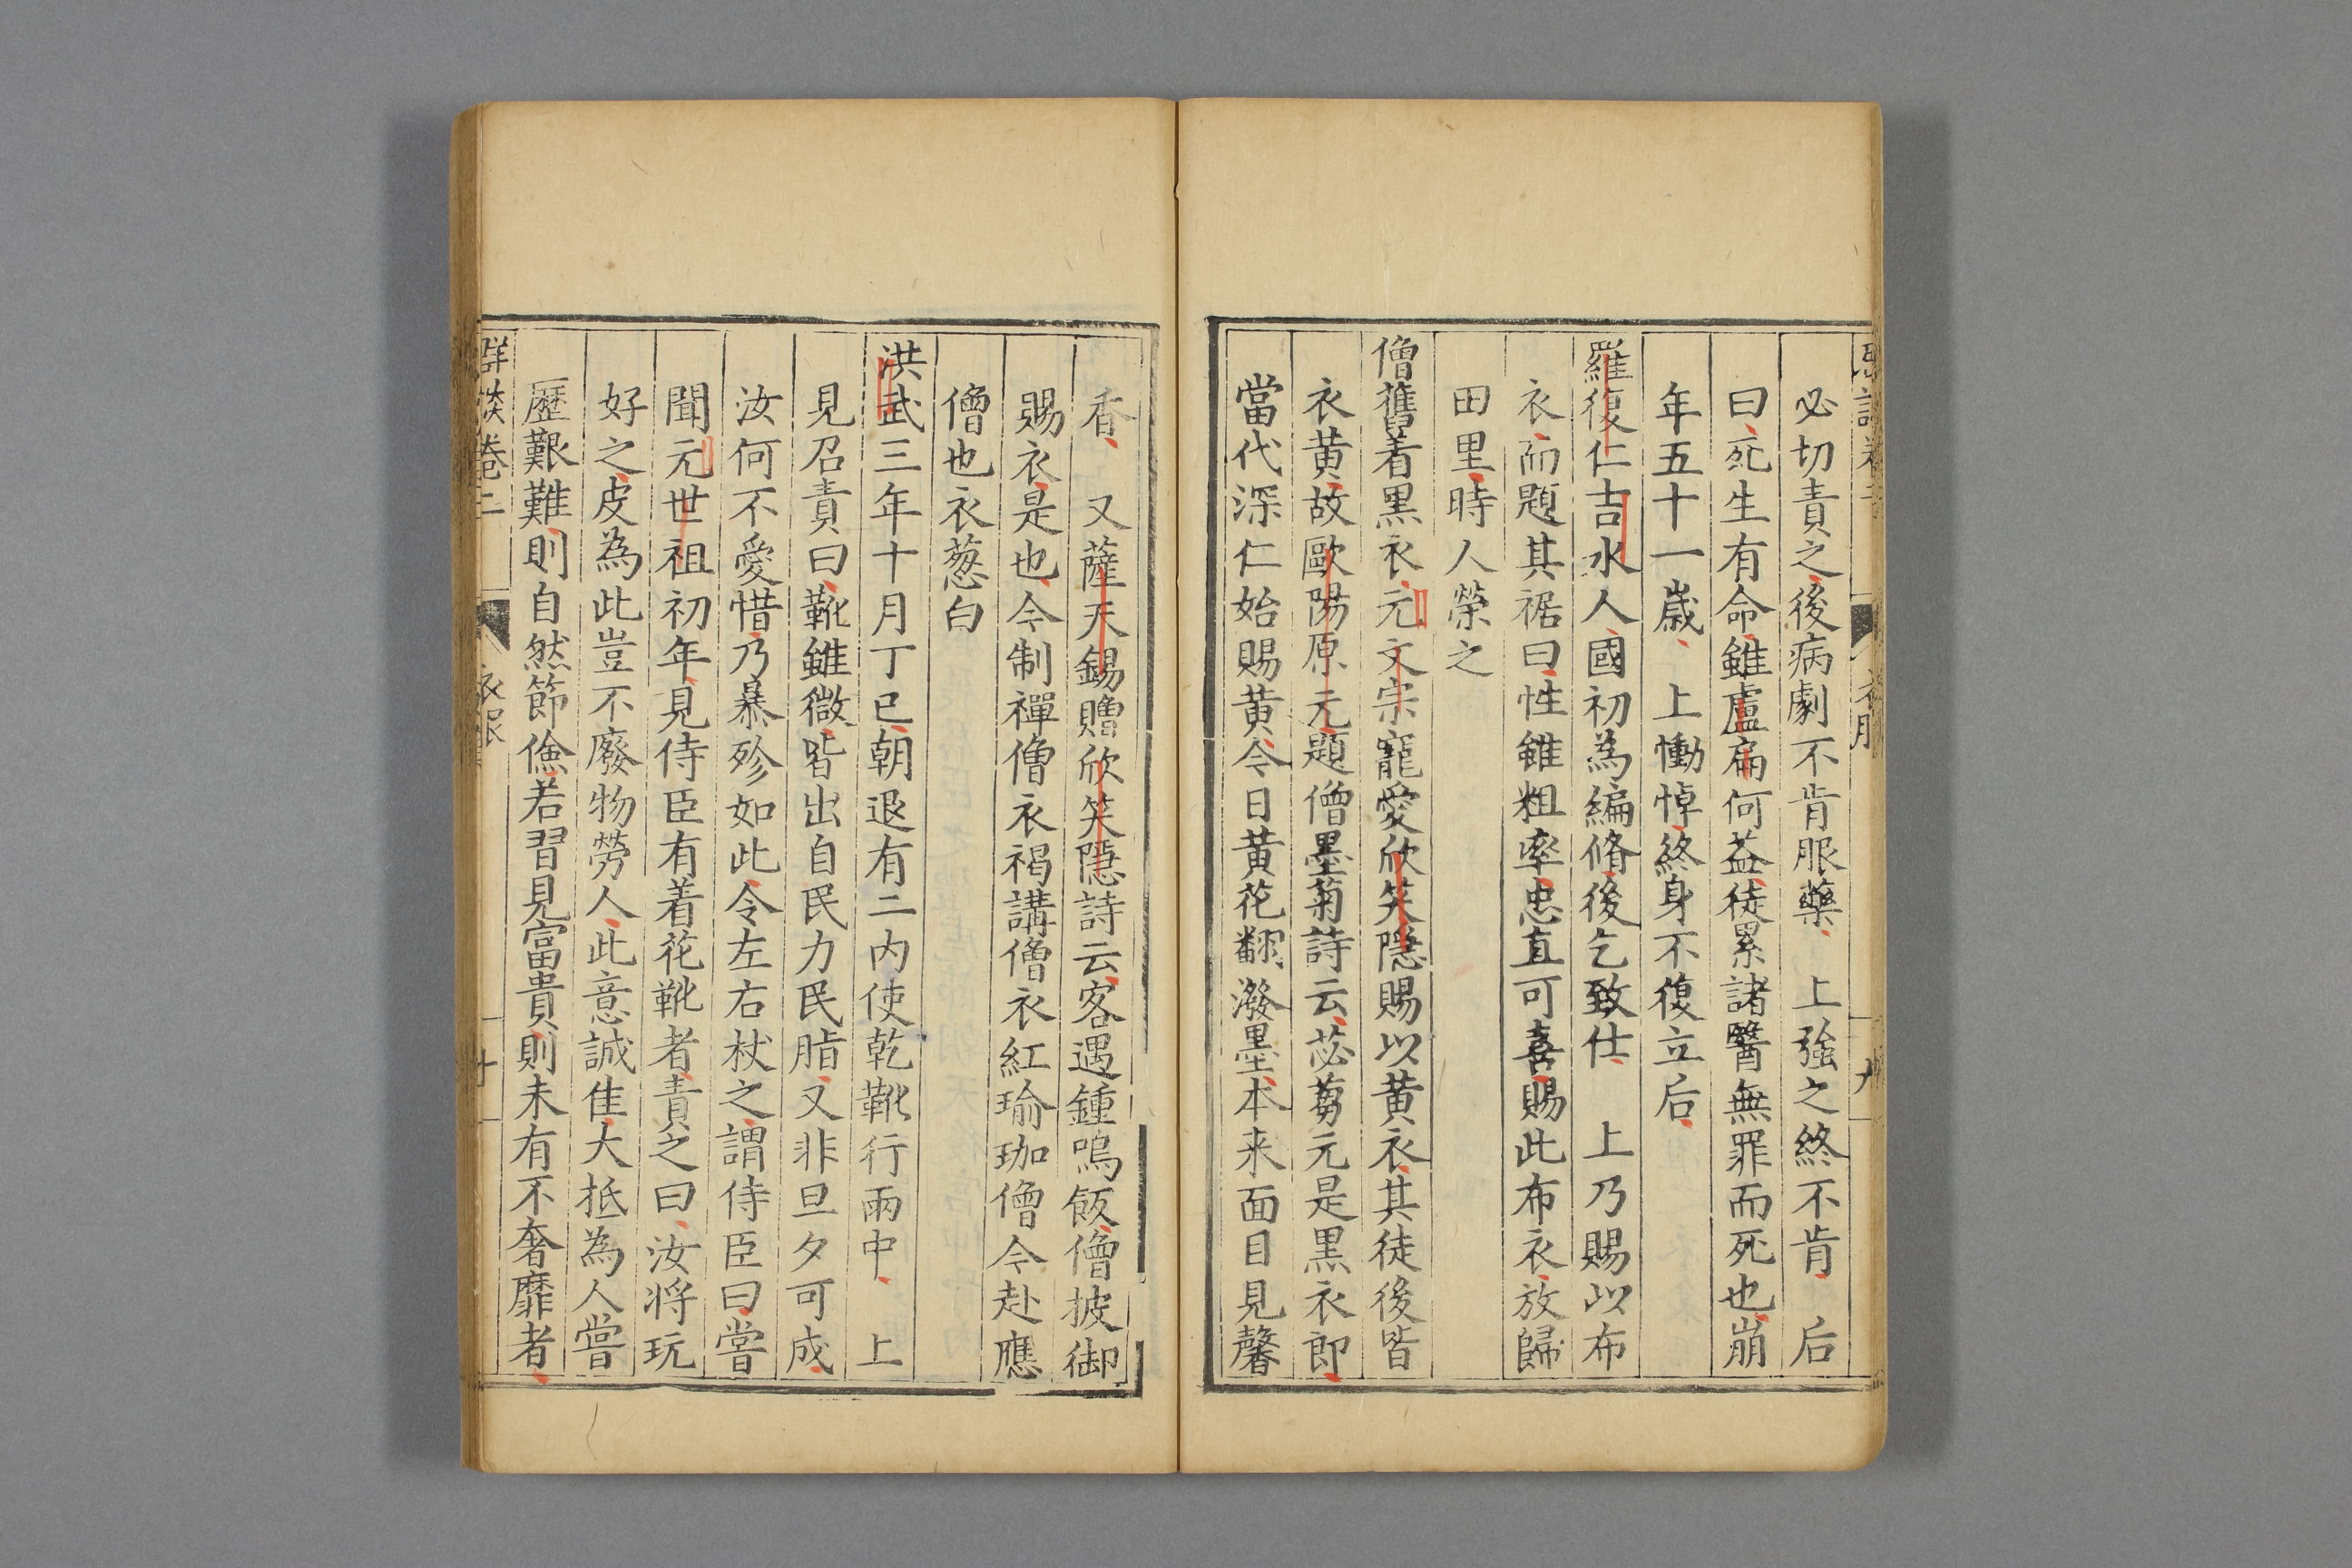 必切責之後病劇不肯服藥 上強之終不肯 后
曰死生有命雖盧扁何益徒累諸醫無罪而死也崩
年五十一歲 上慟悼終身不復立后
羅復仁吉水人國初為編脩後乞致仕 上乃賜以布
衣而題其裾曰性雖粗率忠直可喜賜此布衣放歸
田里時人榮之
僧舊着黑衣元文宗寵愛欣笑隱賜以黃衣其徒後皆
衣黃故歐陽原元題僧墨菊詩云苾蒭元是黑衣郎
當代深仁始賜黃今日黃花翻潑墨本来面目見馨
香 又薩天錫贈欣笑隱詩云客遇鍾鳴飯僧披御
賜衣是也今制禪僧衣褐講僧衣紅瑜珈僧今赴應
僧也衣葱白
洪武三年十月丁巳朝退有二内使乾靴行雨中 上
見召責曰靴雖微皆出自民力民脂又非旦夕可成
汝何不愛惜乃暴殄如此令左右杖之謂侍臣曰嘗
聞元世祖初年見侍臣有着花靴者責之曰汝将玩
好之皮為此豈不廢物勞人此意誠佳大抵為人嘗
歷艱難則自然節儉若習見富貴則未有不奢靡者
群談卷二 衣服 十